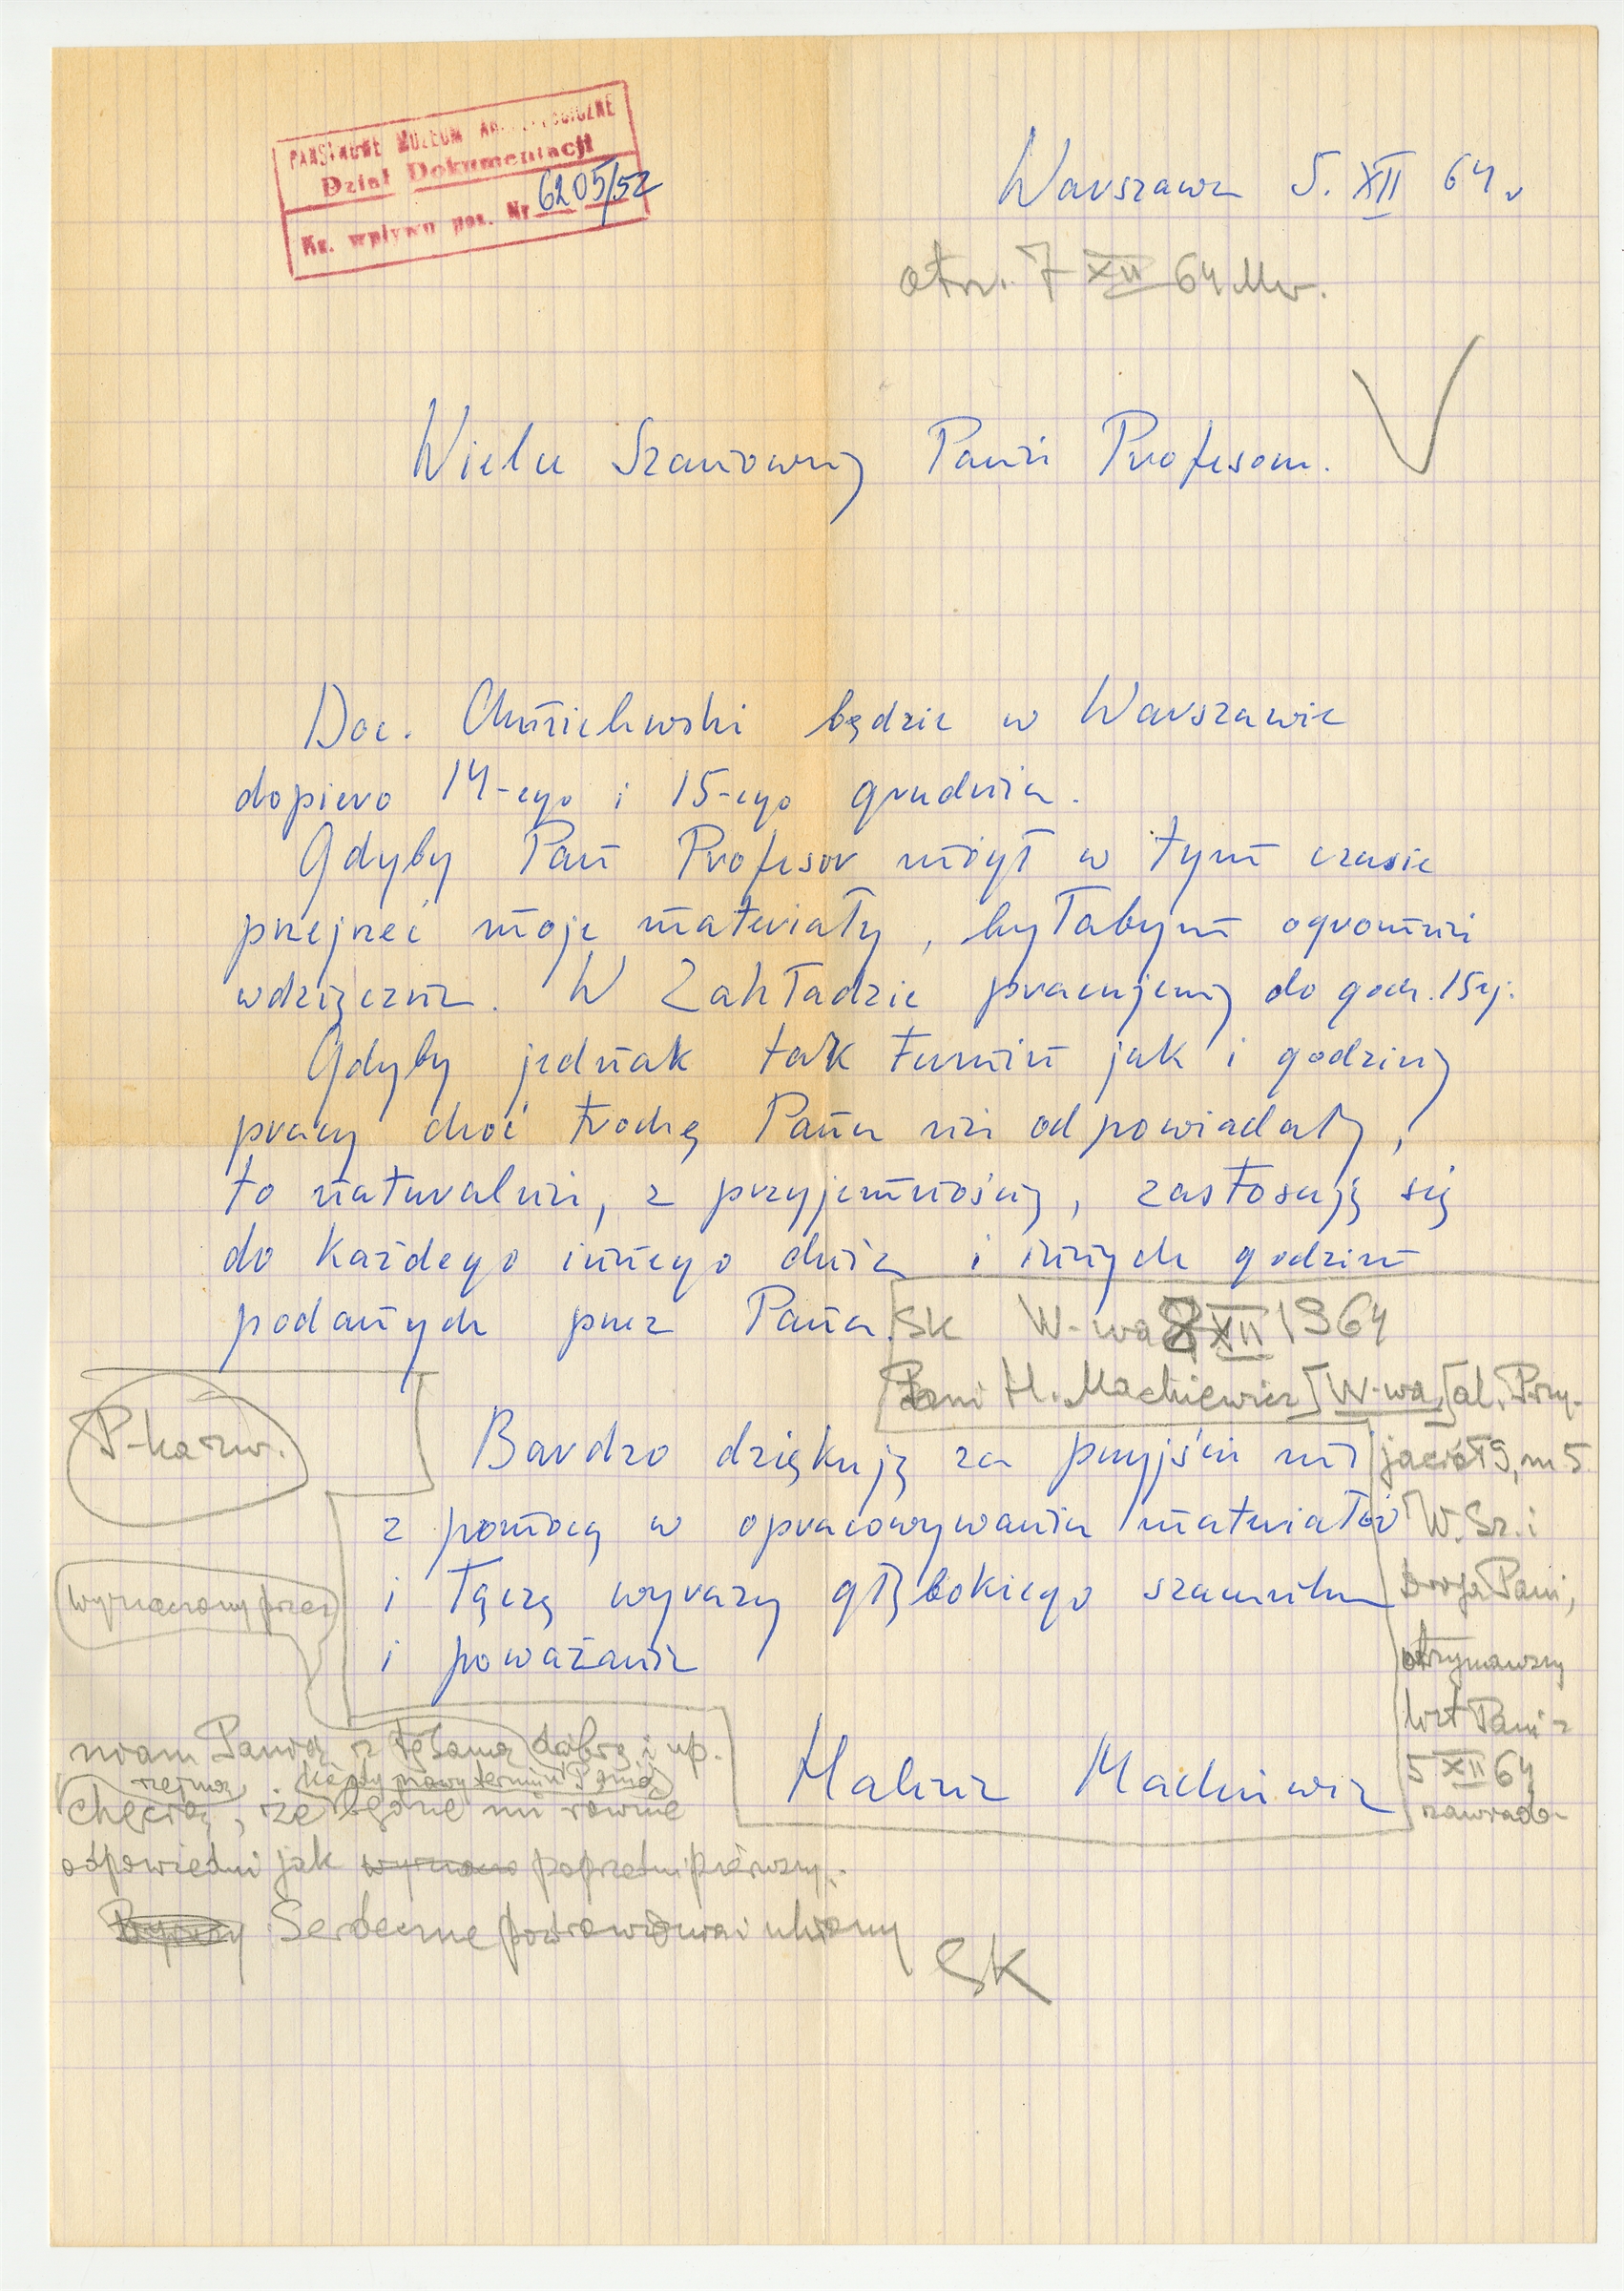 PAŃSTWOWE MUZEUM ARCHEOLOGICZNE
Dział Dokumentacji
Kr. wpływu poz. Nr 6205/52
Warszawa 5. XII 64 r
otrz. 7 XII 64
Wielce Szanowny Panie Profesorze.
Doc. Chmielewski będzie w Warszawie
dopiero 14-ego i 15-ego grudnia.
Gdyby Pan Profesor mógł w tym czasie
przejrzeć moje materiały, byłabym ogromnie
wdzięczna. W Zakładzie pracujemy do godz. 15ej.
Gdyby jednak tak termin jak i godziny
pracy choć trochę Panu nie odpowiadały,
to naturalnie, z przyjemnością, zastosuję się
do każdego innego dnia i innych godzin
podanych przez Pana.
Bardzo dziękuję za przyjście mi
z pomocą w opracowywaniu materiałów
i łączę wyrazy głębokiego szacunku
i poważania
Halina Mackiewicz
SK W-wa 8 XII 1964
Pani H. Mackiewicz W-wa, al. Przy-
jaciół 9, m 5
W. Sz. i
Droga Pani,
otrzymawszy
list Pani z
5 XII 64
zawiado-
P-ka zw.
wyznaczony przez
miam Panią z tą samą dobrą i up-
rzejmą każdy nowy termin Panią
chęcią, że będzie mi równie
odpowiedni jak poprzedni pierwszy.
Serdeczne pozdrowienia i ukłony
SK